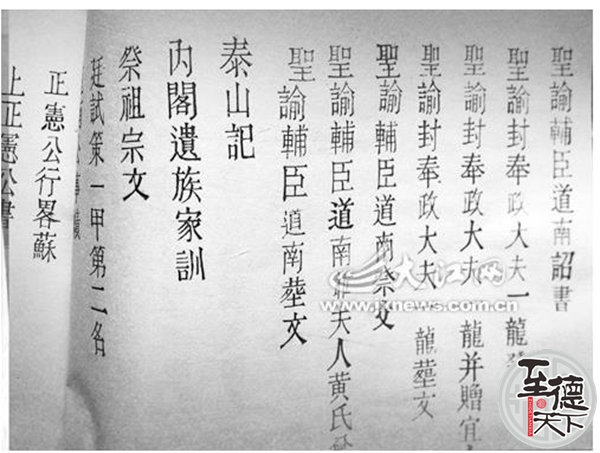 聖諭輔臣道南詔書
聖諭封奉政大夫一龍
聖諭封奉政大夫 龍并贈宜
聖諭封奉政大夫 龍塟文
聖諭輔臣道南祭文
聖諭輔臣道南 夫人黄氏
聖諭輔臣道南塟文
泰山記
内閣遺族家訓
祭祖宗文
廷試策一甲第二名
正憲公行畧蘇
上正憲公書
大江网
www.jxnews.com.cn
至德天下